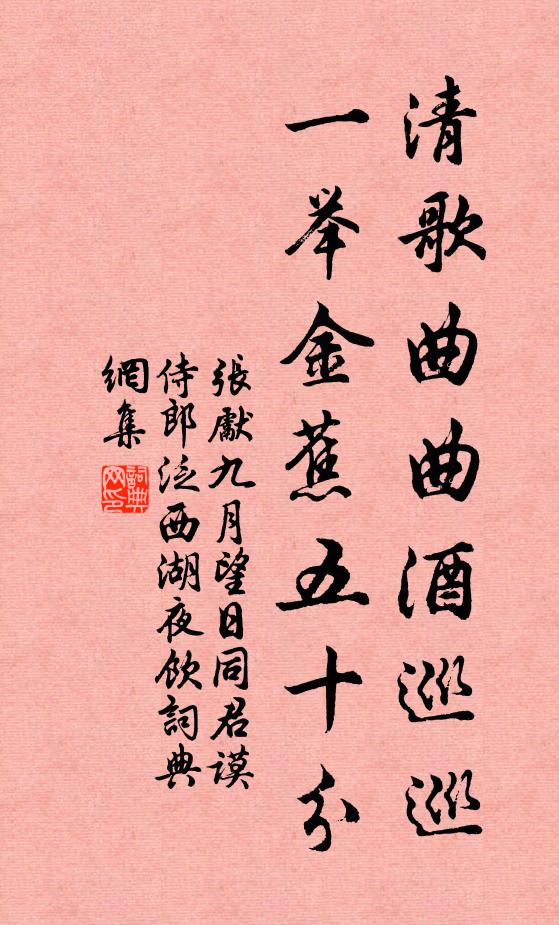 清歌曲曲酒巡巡
一举金蕉五十分
張獻九月望日同君謨
侍郎泛西湖夜飲詞典
網集
詞典
网印